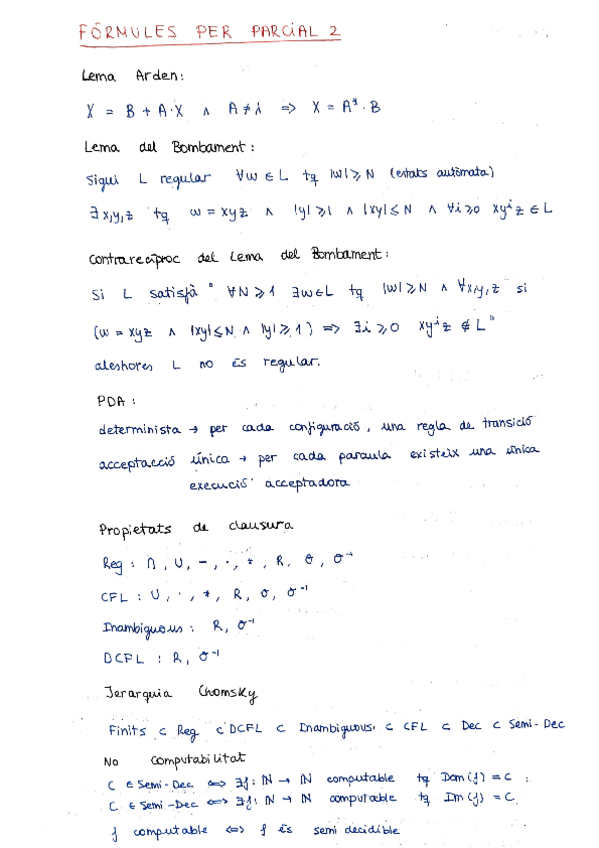 FÓRMULES PER PARCIAL 2
Lema Arden:
X = B + A·X ∧ A ≠ λ ⇒ X = A*·B
Lema del Bombament:
Sigui L regular ∀w ∈ L tq |w| ≥ N (estats autòmata)
∃x,y,z tq w = xyz ∧ |y| ≥ 1 ∧ |xy| ≤ N ∧ ∀i ≥ 0 xyⁱz ∈ L
Contrarecíproc del Lema del Bombament:
Si L satisfà "∀N ≥ 1 ∃w∈L tq |w| ≥ N ∧ ∀x,y,z si
(w = xyz ∧ |xy| ≤ N ∧ |y| ≥ 1) ⇒ ∃i ≥ 0 xyⁱz ∉ L"
aleshores L no és regular.
PDA:
determinista → per cada configuració, una regla de transició
acceptacció única → per cada paraula existeix una única
execució acceptadora
Propietats de clausura
Reg: ∩, ∪, −, ·, *, R, σ, σ⁻¹
CFL: ∪, ·, *, R, σ, σ⁻¹
Inambiguous: R, σ⁻¹
DCFL: R, σ⁻¹
Jerarquia Chomsky
Finits ⊂ Reg ⊂ DCFL ⊂ Inambiguous ⊂ CFL ⊂ Dec ⊂ Semi-Dec
No Computabilitat
C ∈ Semi-Dec ⇔ ∃f: ℕ → ℕ computable tq Dom(f) = C
C ∈ Semi-Dec ⇔ ∃f: ℕ → ℕ computable tq Im(f) = C
f computable ⇔ f és semi decidible